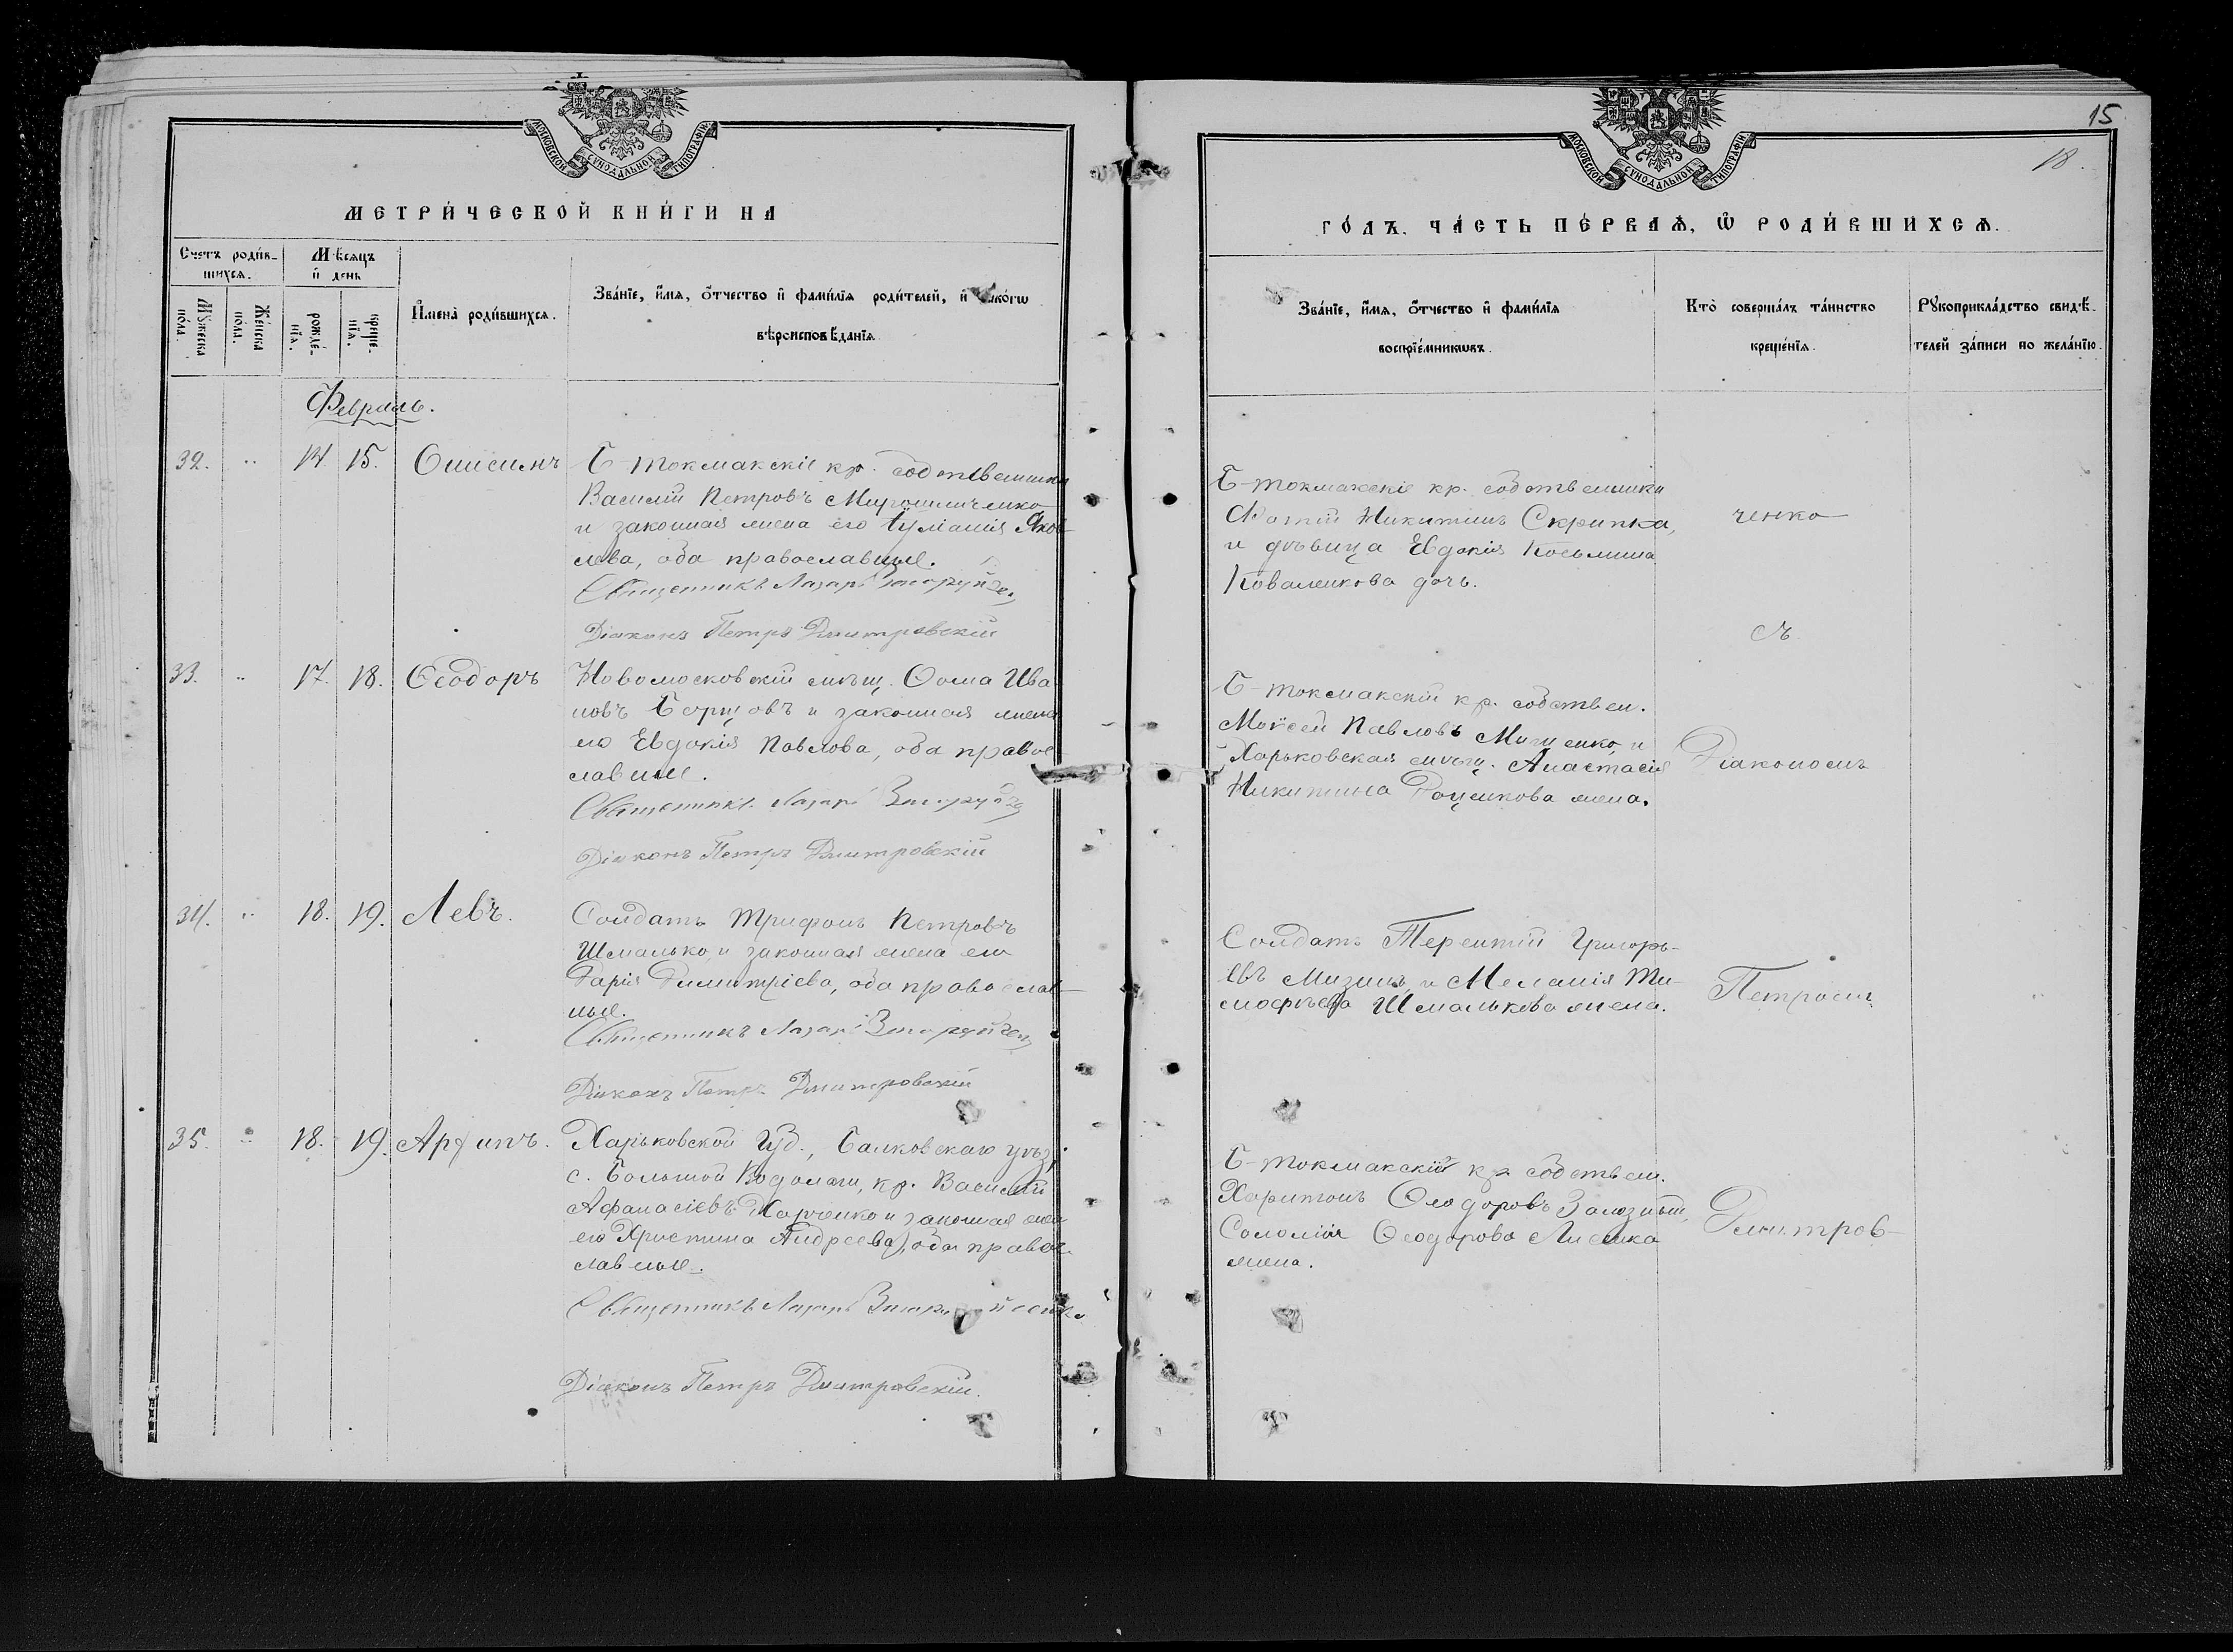 МОСКОВСКОЙ СѴНОДАЛЬНОЙ ТИПОГРАФІИ
МЕТРИ́ЧЕСКОЙ КНИ́ГИ НА
Счетъ роди́в-
шихсѧ.
Мѣсяцъ
и҆ день
Мꙋ́жеска
по́ла.
Же́нска
по́ла.
рожде́-
нїѧ.
креще́-
нїѧ.
И҆мена̀ роди́вшихсѧ.
Зва́нїе, и҆́мѧ, ѻ҆́тчество и҆ фами́лїѧ роди́телей, и҆
вѣроисповѣ́данїѧ
Февраль.
32. " 14. 15. Онисимъ
Б-токмакскіе кр. собственники
Василій Петровъ Мирошниченко
и законная жена его Іуліанія Яков-
лева, оба православные.
Священникъ Лазарь
Діаконъ Петръ Дмитровскій
33. " 17. 18. Ѳеодоръ
Новомосковскій мѣщ. Ѳома Ива-
новъ Борщовъ и законная жена
его Евдокія Павлова, оба право-
славные.
Священникъ Лазарь
Діаконъ Петръ Дмитровскій
34. " 18. 19. Левъ.
Солдатъ Трифонъ Петровъ
Шмалько, и законная жена его
Дарія Димитріева, оба православ-
ные.
Священникъ Лазарь
Діаконъ Петръ Дмитровскій
35. " 18. 19. Архипъ.
Харьковской губ., Валковскаго уѣз.
с. Большой Водолаги, кр. Василій
Афанасіевъ Харченко и законная жена
его Христина Андреева, оба право-
славные.
Священникъ Лазарь
Діаконъ Петръ Дмитровскій.
15
18.
МОСКОВСКОЙ СѴНОДАЛЬНОЙ ТИПОГРАФІИ
ГО́ДЪ. ЧА́СТЬ ПЕ́РВАѦ, Ѡ҆ РОДИ́ВШИХСѦ.
Зва́нїе, и҆́мѧ, ѻ҆́тчество и҆ фами́лїѧ
воспрїе́мникѡвъ.
Кто̀ соверша́лъ та́инство
креще́нїѧ.
Рꙋкоприкла́дство свидѣ́-
телей за́писи по жела́нїю.
Б-токмакскіе кр. собственники
Фотій Никитинъ Скрипка,
и дѣвица Евдокія Косьмина
Коваленкова дочь.
ченко
съ
Б-токмакскій кр. собствен.
Моѵсей Павловъ Мищенко, и
Харьковская мѣщ. Анастасія
Никитина Доценкова жена.
Діакономъ
Солдатъ Терентій Григорь-
евъ Мизинъ, и Меланія Ти-
моѳѣева Шмалькова жена.
Петромъ
Б-токмакскій кр. собствен.
Харитонъ Ѳеодоровъ Залозный,
Соломія Ѳеодорова Лисенка
жена.
Дмитров-